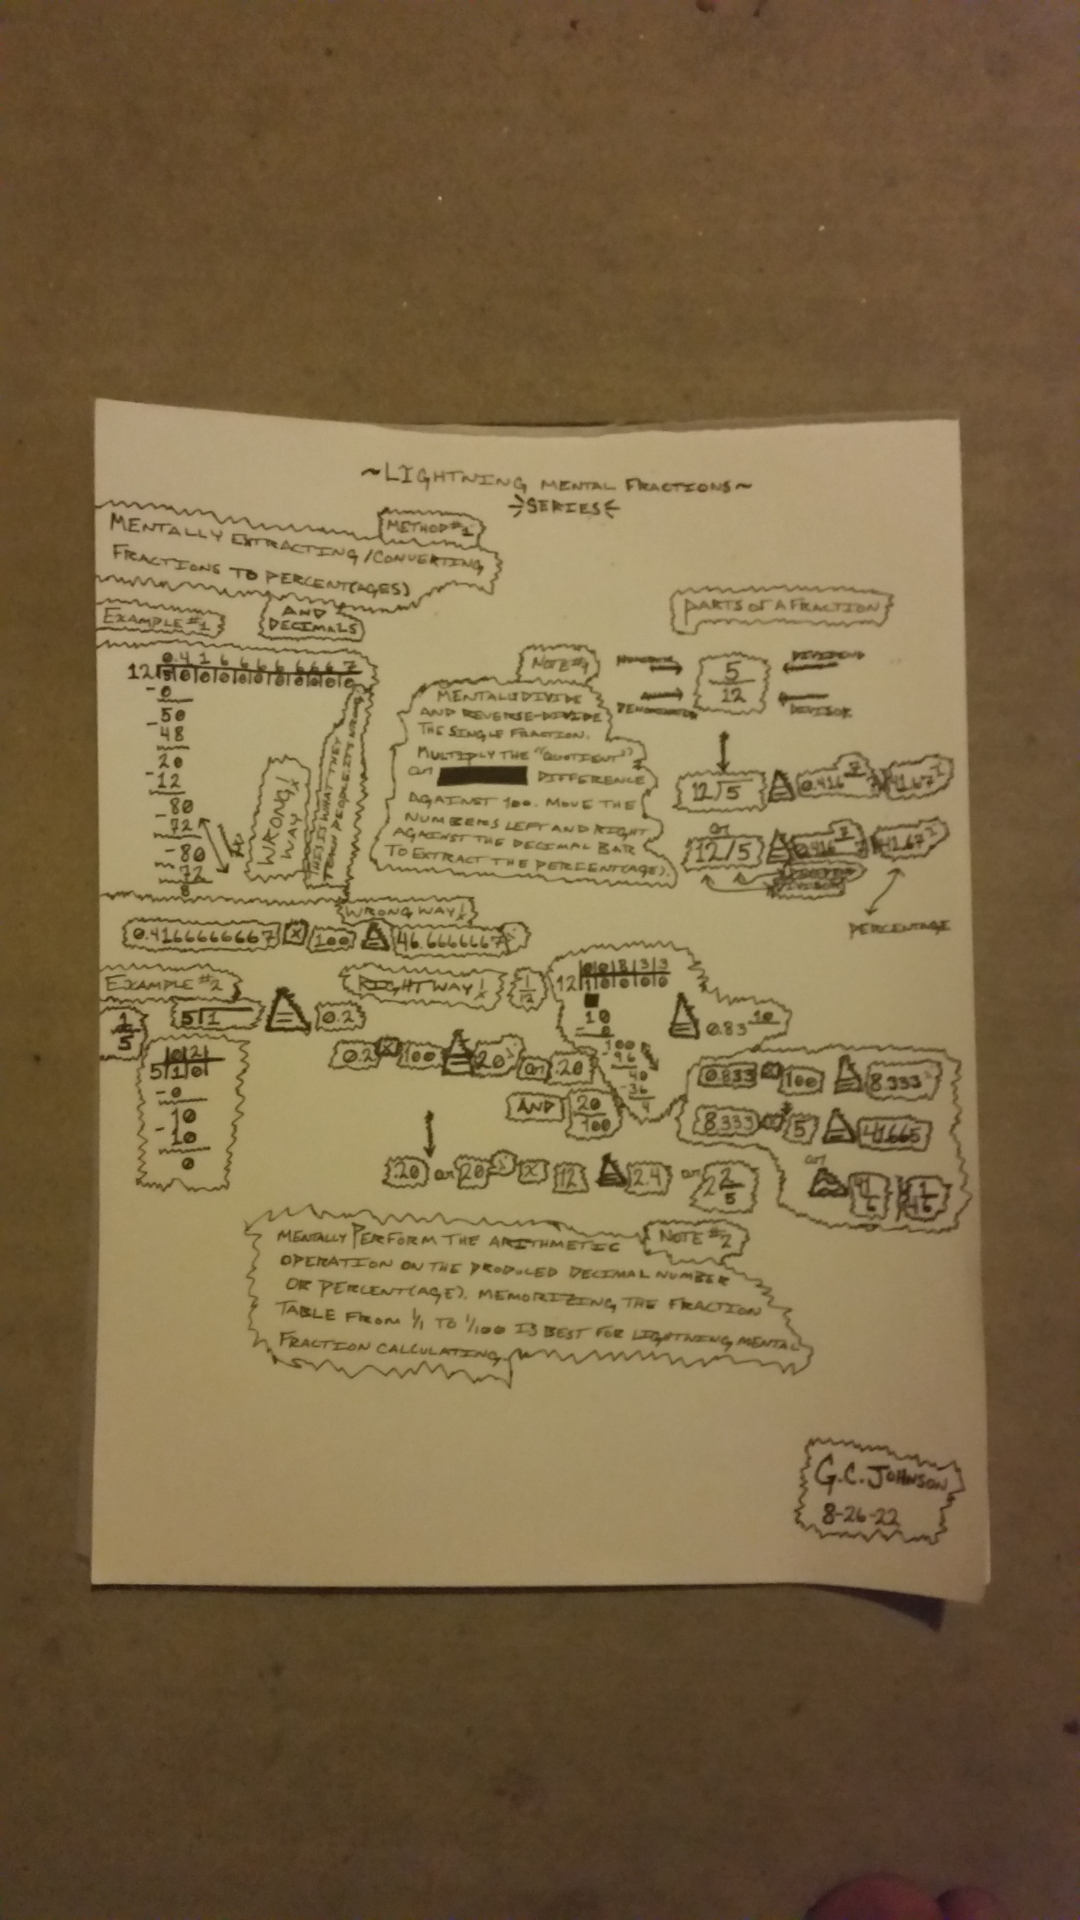 ~LIGHTNING MENTAL FRACTIONS~
SERIES
METHOD #1
MENTALLY EXTRACTING/CONVERTING
FRACTIONS TO PERCENT(AGES)
AND
DECIMALS
EXAMPLE #1
0.4 1 6 6 6 6 6 6 6 7
12
-0
50
-48
20
-12
80
72
-80
-72
8
WRONG!
WAY
THIS IS WHAT THEY
TEACH PEOPLE. IT'S WRONG
NOTE #1
MENTALLY DIVIDE
AND REVERSE-DIVIDE
THE SINGLE FRACTION.
MULTIPLY THE "QUOTIENT"
OR DIFFERENCE
AGAINST 100. MOVE THE
NUMBERS LEFT AND RIGHT
AGAINST THE DECIMAL BAR
TO EXTRACT THE PERCENT(AGE).
PARTS OF A FRACTION
DIVIDEND
5
12
DENOMINATOR
DIVISOR
12/5
OR
12/5
DIVISOR
PERCENTAGE
WRONG WAY!
0.41666666667 x 100 = 46.6666667%
EXAMPLE #2
RIGHT WAY!
1/12
1/5
5 1 = 0.2
0 2
5 1 0
-0
10
-10
0
0.2 x 100 = 20% OR .20
AND 20/100
12
10
-0
100
-96
40
-36
4
= 0.83
0.833 x 100 = 8.333%
8.333 x 5 = 41.665
OR
.20 OR 20% x 12 = 2.4 OR 2 2/5
NOTE #2
MENTALLY PERFORM THE ARITHMETIC
OPERATION ON THE PRODUCED DECIMAL NUMBER
OR PERCENT(AGE). MEMORIZING THE FRACTION
TABLE FROM 1/1 TO 1/100 IS BEST FOR LIGHTNING MENTAL
FRACTION CALCULATING.
G.C. JOHNSON
8-26-22